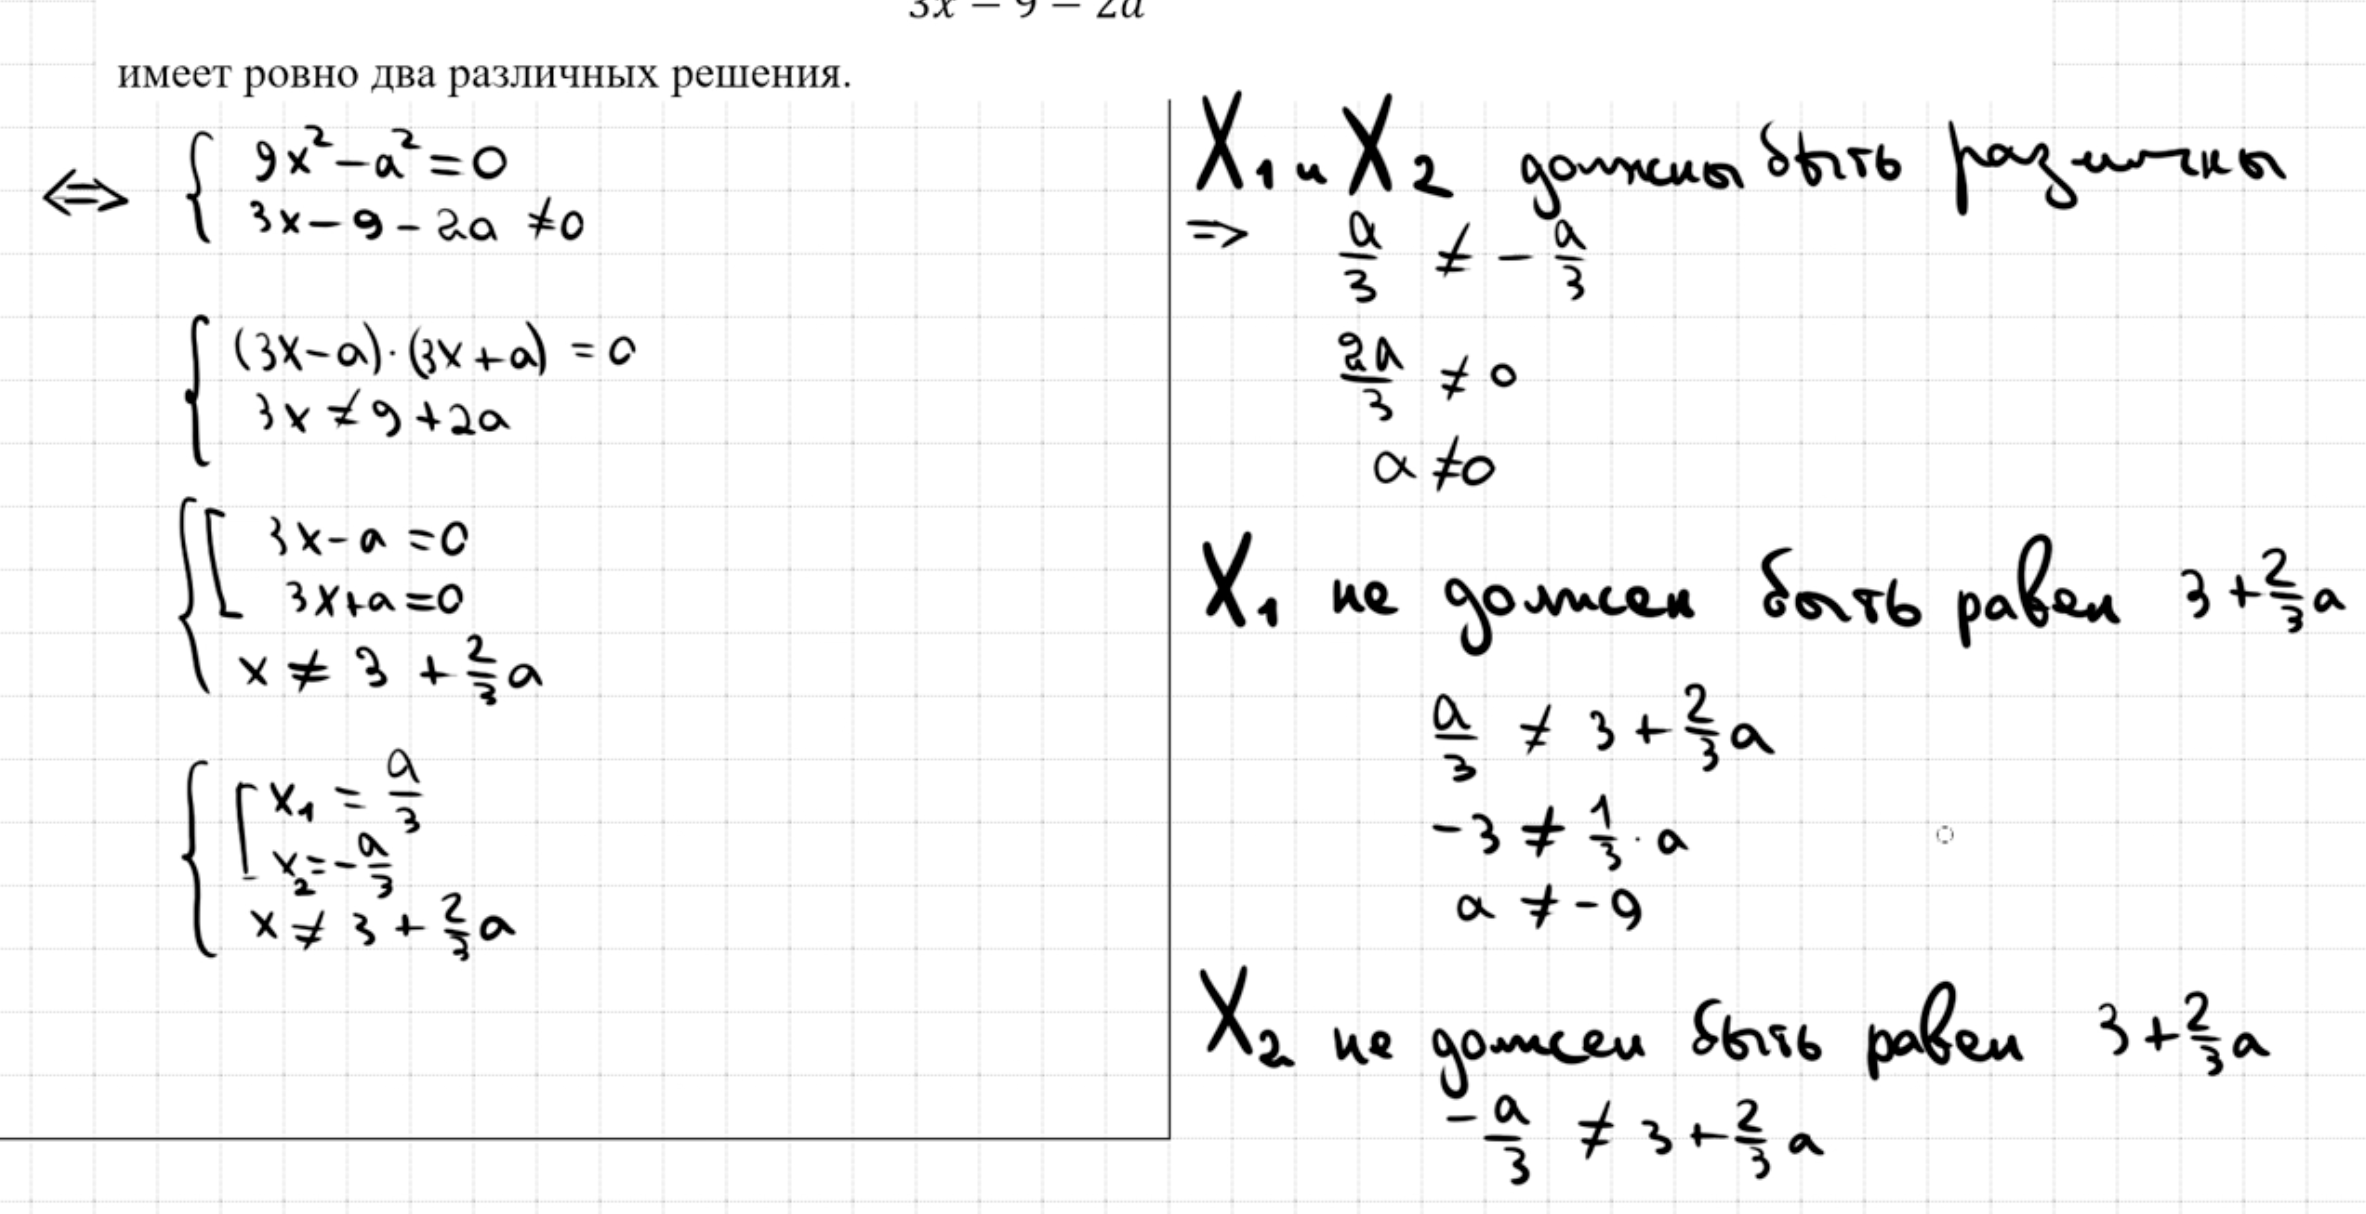 3x − 9 − 2a
имеет ровно два различных решения.
⇔ { 9x² − a² = 0
3x − 9 − 2a ≠ 0
{ (3x − a) · (3x + a) = 0
3x ≠ 9 + 2a
{ [ 3x − a = 0
3x + a = 0
x ≠ 3 + 2/3 a
{ [ x₁ = a/3
x₂ = − a/3
x ≠ 3 + 2/3 a
X₁ и X₂ должны быть различны
⇒ a/3 ≠ − a/3
2a/3 ≠ 0
a ≠ 0
X₁ не должен быть равен 3 + 2/3 a
a/3 ≠ 3 + 2/3 a
−3 ≠ 1/3 · a
a ≠ −9
X₂ не должен быть равен 3 + 2/3 a
− a/3 ≠ 3 + 2/3 a